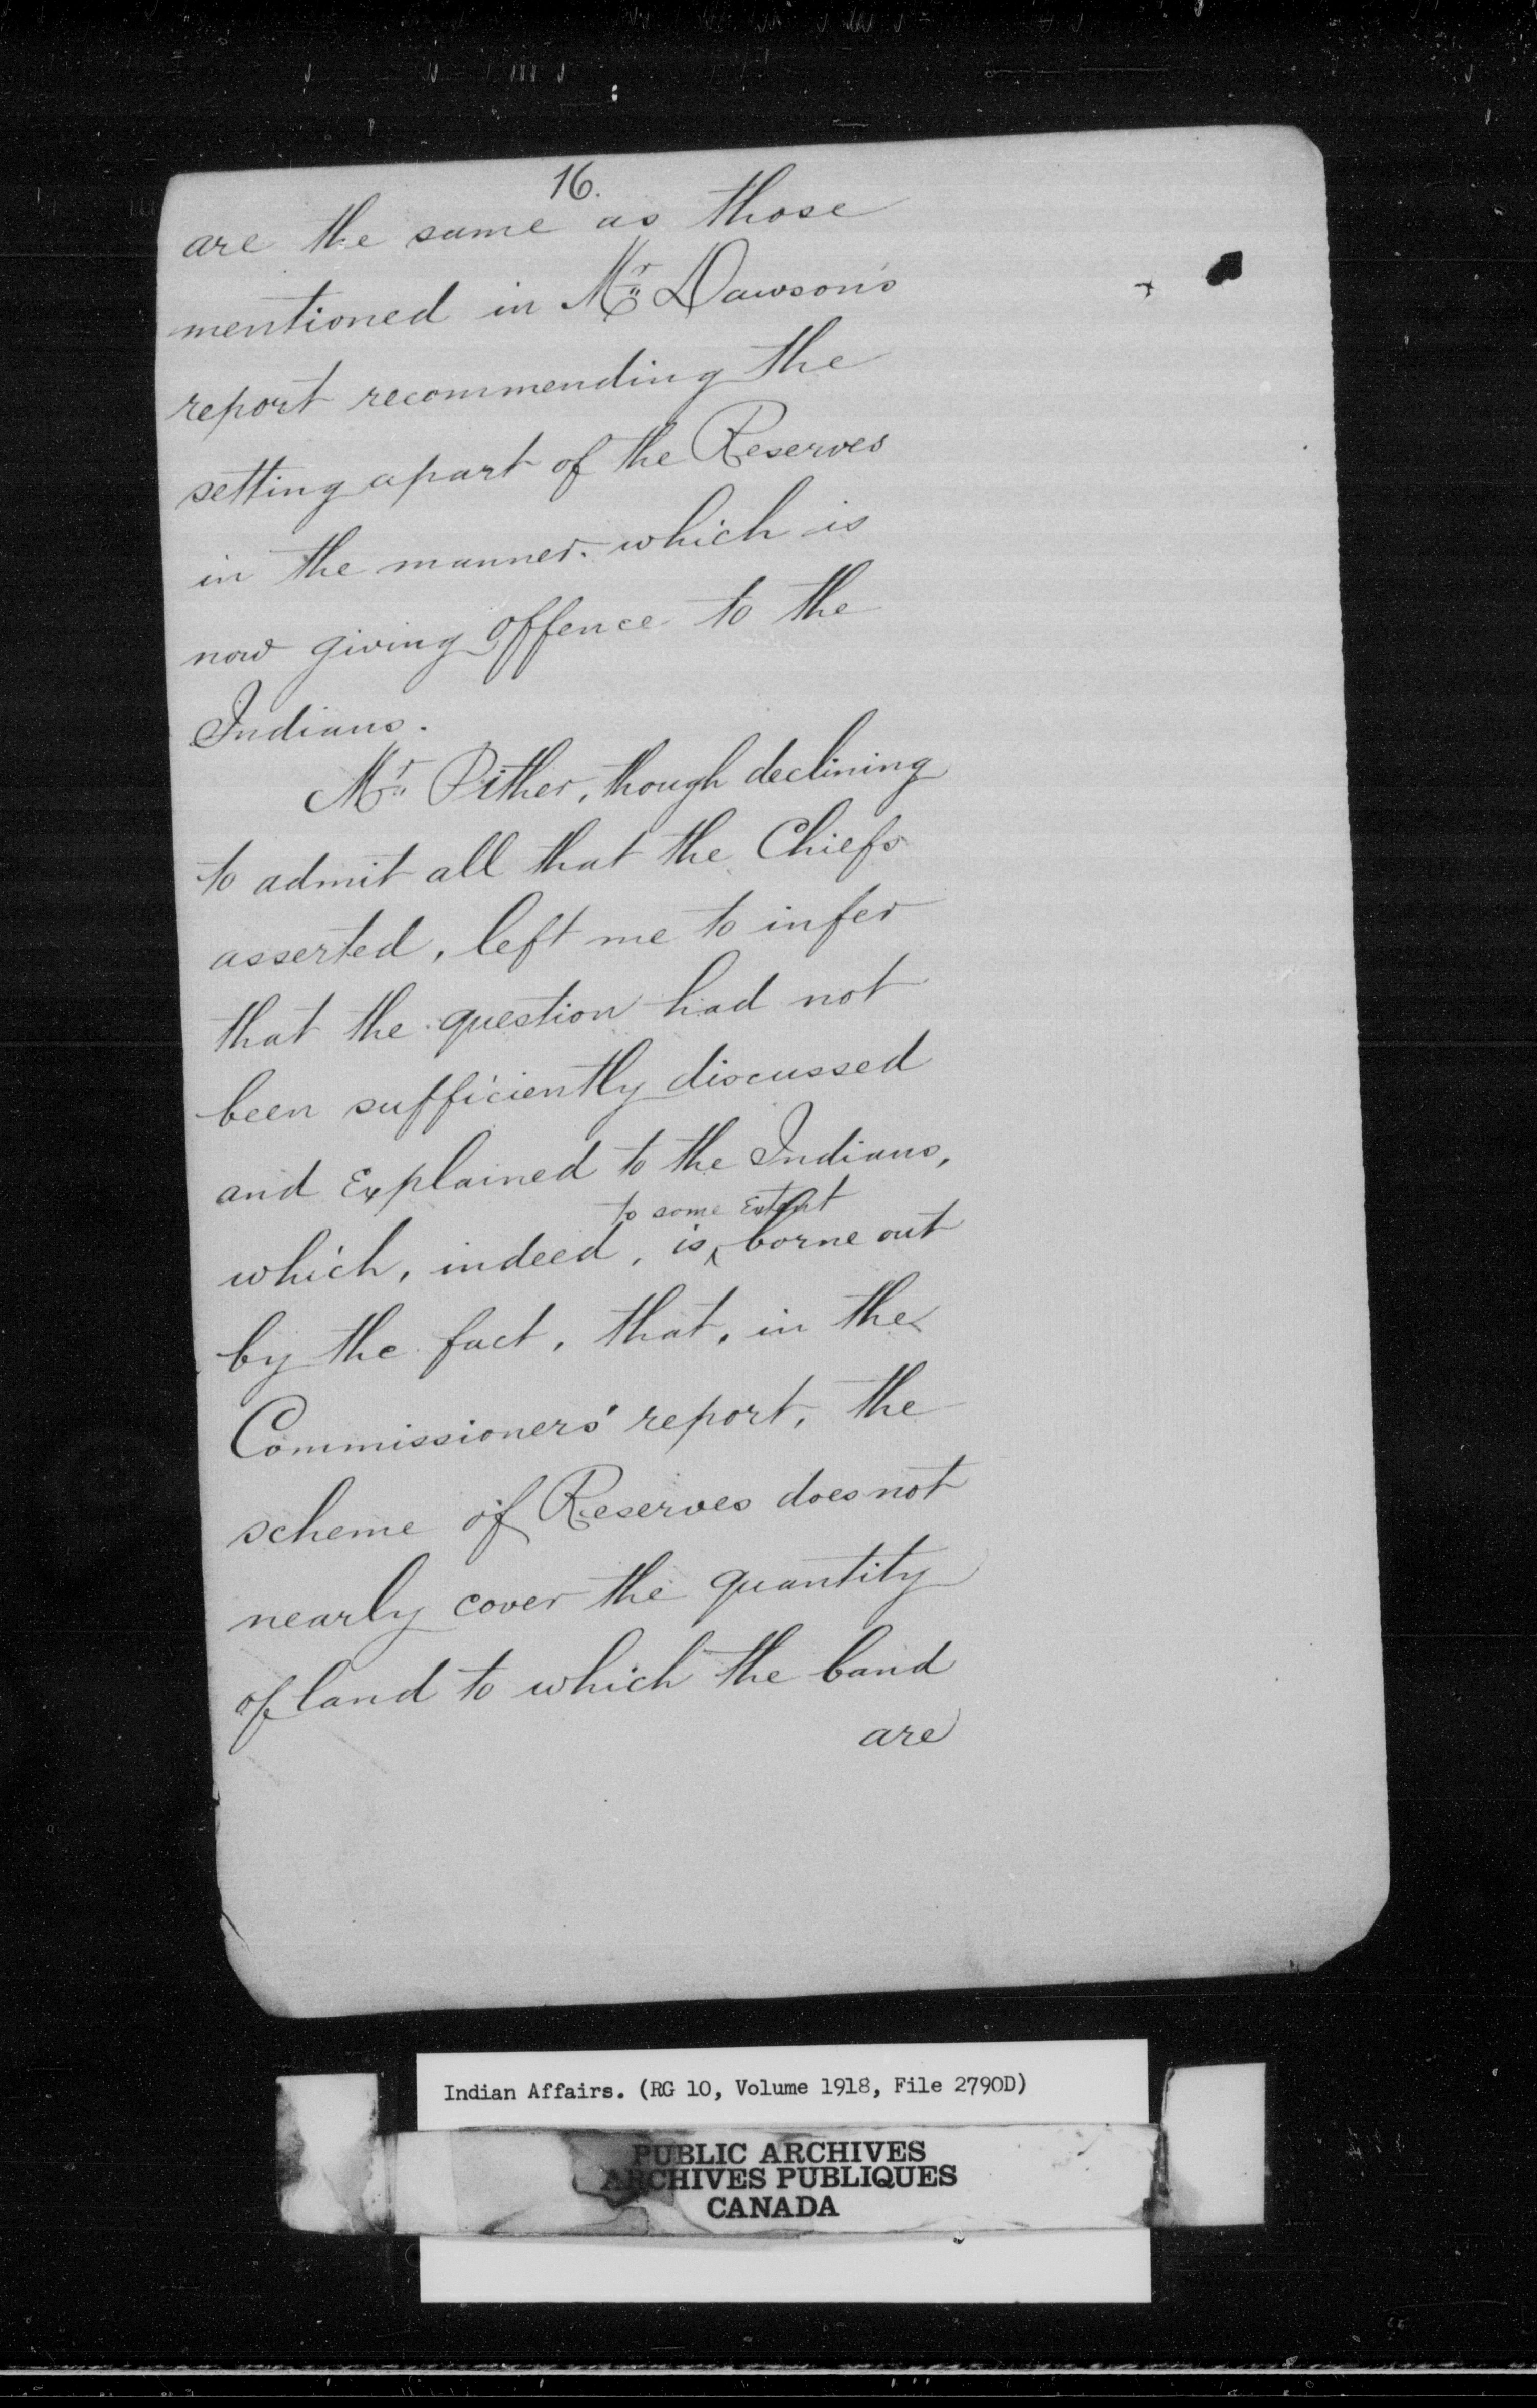 16.
are the same as those
mentioned in Mr. Dawson's
report recommending the
setting apart of the Reserves
in the manner which is
now giving offence to the
Indians.
Mr. Pither, though declining
to admit all that the Chiefs
asserted, left me to infer
that the question had not
been sufficiently discussed
and Explained to the Indians,
to some Extent
which, indeed, is borne out
by the fact, that, in the
Commissioners' report, the
scheme of Reserves does not
nearly cover the quantity
of land to which the band
are
Indian Affairs. (RG 10, Volume 1918, File 2790D)
PUBLIC ARCHIVES
ARCHIVES PUBLIQUES
CANADA